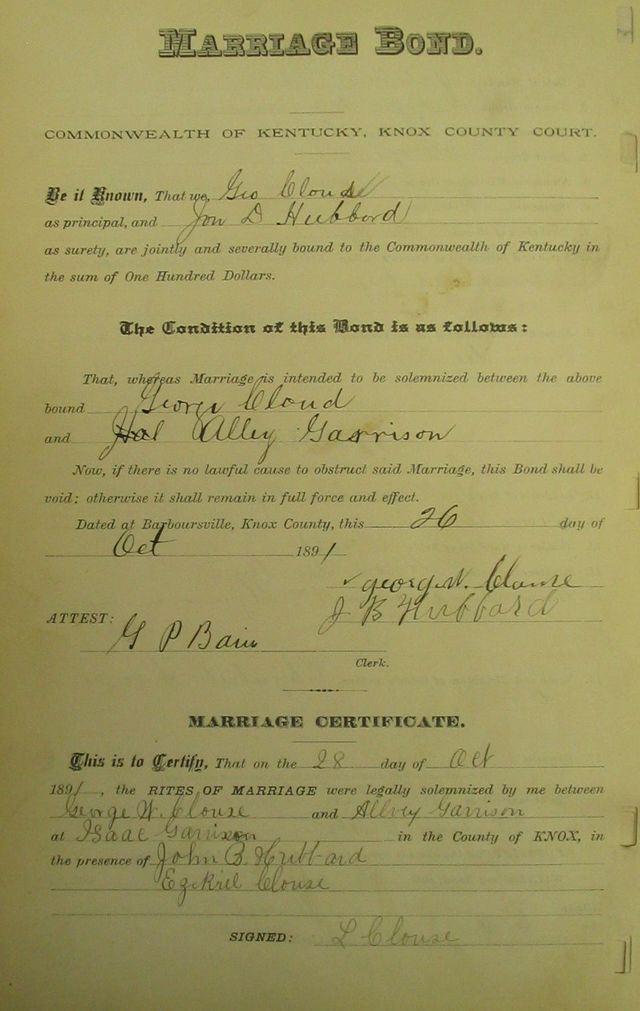 MARRIAGE BOND.
COMMONWEALTH OF KENTUCKY, KNOX COUNTY COURT.
Be it Known, That we, Geo Cloud
as principal, and Jon D Hubbard
as surety, are jointly and severally bound to the Commonwealth of Kentucky in
the sum of One Hundred Dollars.
The Condition of this Bond is as follows:
That, whereas Marriage is intended to be solemnized between the above
bound George Cloud
and Alley Garrison
Now, if there is no lawful cause to obstruct said Marriage, this Bond shall be
void; otherwise it shall remain in full force and effect.
Dated at Barboursville, Knox County, this 26 day of
Oct 1891
George W. Clouse
J B Hubbard
ATTEST:
G P Bain
Clerk.
MARRIAGE CERTIFICATE.
This is to Certify, That on the 28 day of Oct
1891, the RITES OF MARRIAGE were legally solemnized by me between
George W. Clouse and Allvey Garrison
at Isaac Garrison in the County of KNOX, in
the presence of John B. Hubbard
Ezekriel Clouse
SIGNED: L Clouse